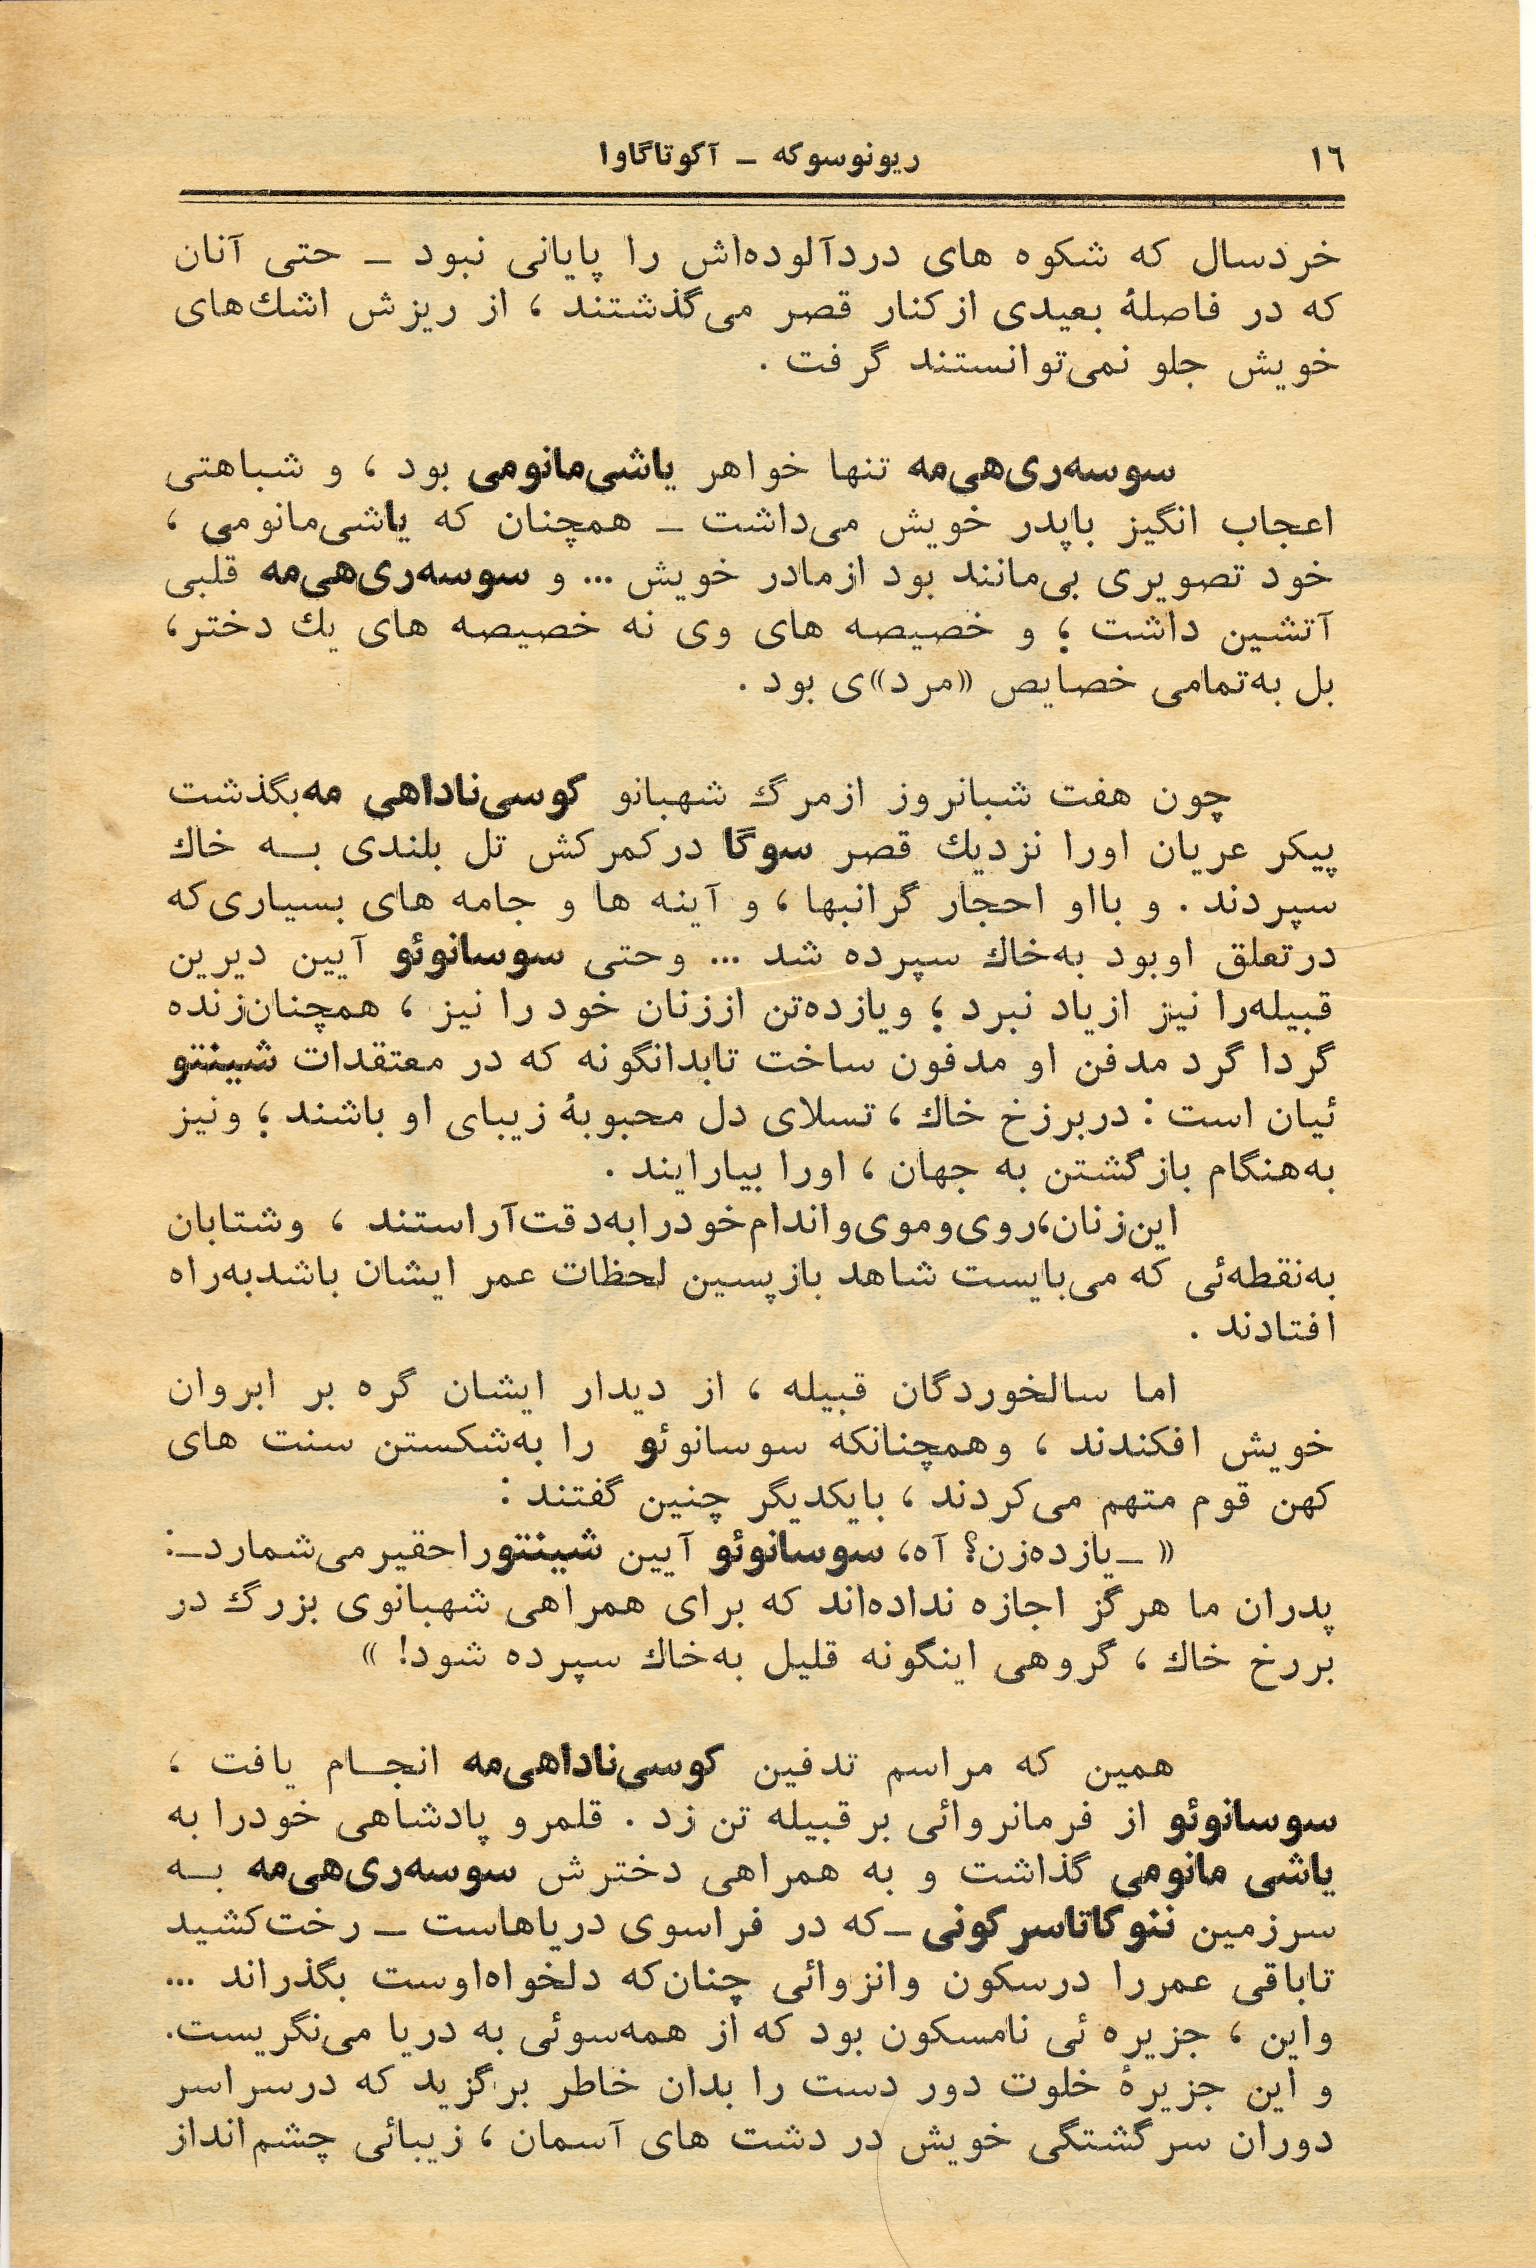 ١٦
ریونوسوکه ــ آکوتاگاوا
خردسال که شکوه های دردآلوده‌اش را پایانی نبود ــ حتی آنان
که در فاصلهٔ بعیدی از کنار قصر می‌گذشتند ، از ریزش اشك‌های
خویش جلو نمی‌توانستند گرفت .
سوسه‌ری‌هی‌مه تنها خواهر یاشی‌مانومی بود ، و شباهتی
اعجاب انگیز باپدر خویش می‌داشت ــ همچنان که یاشی‌مانومی ،
خود تصویری بی‌مانند بود ازمادر خویش ... و سوسه‌ری‌هی‌مه قلبی
آتشین داشت ؛ و خصیصه های وی نه خصیصه های یك دختر،
بل به‌تمامی خصایص «مرد»ی بود .
چون هفت شبانروز ازمرگ شهبانو کوسی‌ناداهی مه‌بگذشت
پیکر عریان اورا نزدیك قصر سوگا درکمرکش تل بلندی بــه خاك
سپردند . و بااو احجار گرانبها ، و آینه ها و جامه های بسیاری‌که
درتعلق اوبود به‌خاك سپرده شد ... وحتی سوسانوئو آیین دیرین
قبیله‌را نیز ازیاد نبرد ؛ ویازده‌تن اززنان خود را نیز ، همچنان‌زنده
گردا گرد مدفن او مدفون ساخت تابدانگونه که در معتقدات شینتو
ئیان است : دربرزخ خاك ، تسلای دل محبوبهٔ زیبای او باشند ؛ ونیز
به‌هنگام بازگشتن به جهان ، اورا بیارایند .
این‌زنان،روی‌وموی‌واندام‌خودرابه‌دقت‌آراستند ، وشتابان
به‌نقطه‌ئی که می‌بایست شاهد بازپسین لحظات عمر ایشان باشدبه‌راه
افتادند .
اما سالخوردگان قبیله ، از دیدار ایشان گره بر ابروان
خویش افکندند ، وهمچنانکه سوسانوئو را به‌شکستن سنت های
کهن قوم متهم می‌کردند ، بایکدیگر چنین گفتند :
« ــ یازده‌زن؟ آه، سوسانوئو آیین شینتوراحقیرمی‌شمارد ــ:
پدران ما هرگز اجازه نداده‌اند که برای همراهی شهبانوی بزرگ در
بررخ خاك ، گروهی اینگونه قلیل به‌خاك سپرده شود! »
همین که مراسم تدفین کوسی‌ناداهی‌مه انجــام یافت ،
سوسانوئو از فرمانروائی برقبیله تن زد . قلمرو پادشاهی خودرا به
یاشی مانومی گذاشت و به همراهی دخترش سوسه‌ری‌هی‌مه بــه
سرزمین ننوکاتاسرکونی ــ که در فراسوی دریاهاست ــ رخت‌کشید
تاباقی عمررا درسکون وانزوائی چنان‌که دلخواه‌اوست بگذراند ...
واین ، جزیره ئی نامسکون بود که از همه‌سوئی به دریا می‌نگریست.
و این جزیرهٔ خلوت دور دست را بدان خاطر برگزید که درسراسر
دوران سرگشتگی خویش در دشت های آسمان ، زیبائی چشم‌انداز